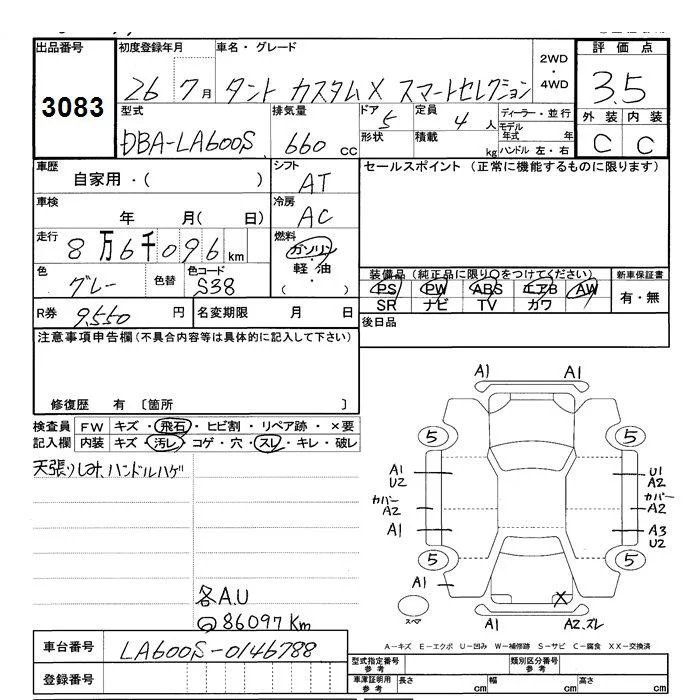 出品番号 初度登録年月 車名・グレード 評価点
3083 26 7月 タント カスタムX スマートセレクション 2WD・4WD 3.5
型式 排気量 ドア 5 定員 4人 ディーラー・並行 外装 内装
DBA-LA600S 660cc 形状 積載 kg モデル年式 年 ハンドル 左・右 C C
車歴 自家用・( ) シフト AT セールスポイント (正常に機能するものに限ります)
車検 年 月( 日) 冷房 AC
走行 8万6千096km 燃料 ガソリン・軽油 ( )
装備品 (純正品に限り○をつけてください) 新車保証書
色 グレー 色替 色コード S38 PS PW ABS エアB AW 有・無
SR ナビ TV カワ
R券 9,550円 名変期限 月 日 後日品
注意事項申告欄 (不具合内容等は具体的に記入して下さい)
修復歴 有 〔箇所 〕
検査員 FW キズ・飛石・ヒビ割・リペア跡・×要
記入欄 内装 キズ・汚レ・コゲ・穴・スレ・キレ・破レ
天張りしみ、ハンドルハゲ
各A.U
86097Km
A1 A1
5 5
A1 U1
U2 A2
カバー カバー
A2 A2
A1 A3
U2
5 5
A1 X
スペア A1 A2.ズレ
A-キズ E-エクボ U-凹み W-補修跡 S-サビ C-腐食 XX-交換済
車台番号 LA600S-0146788 型式指定番号 参考 類別区分番号 参考
登録番号 車庫証明用 参考 長さ cm 幅 cm 高さ cm